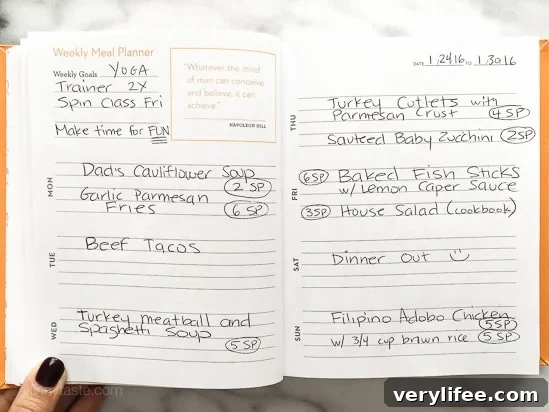 Weekly Meal Planner
Weekly Goals YOGA
Trainer 2X
Spin Class Fri
Make time for FUN
"Whatever the mind
of man can conceive
and believe, it can
achieve."
NAPOLEON HILL
MON
Dad's Cauliflower Soup
2 SP
Garlic Parmesan
Fries 6 SP
TUE
Beef Tacos
WED
Turkey meatball and
Spaghetti Soup
5 SP
DATE 1/24/16 TO 1/30/16
THU
Turkey Cutlets with
Parmesan Crust 4 SP
Sauteed Baby Zucchini 2SP
FRI
6SP Baked Fish Sticks
w/ Lemon Caper Sauce
3SP House Salad (cookbook)
SAT
Dinner Out
SUN
Filipino Adobo Chicken
5SP
w/ 3/4 cup brown rice 5 SP
verylifee.com